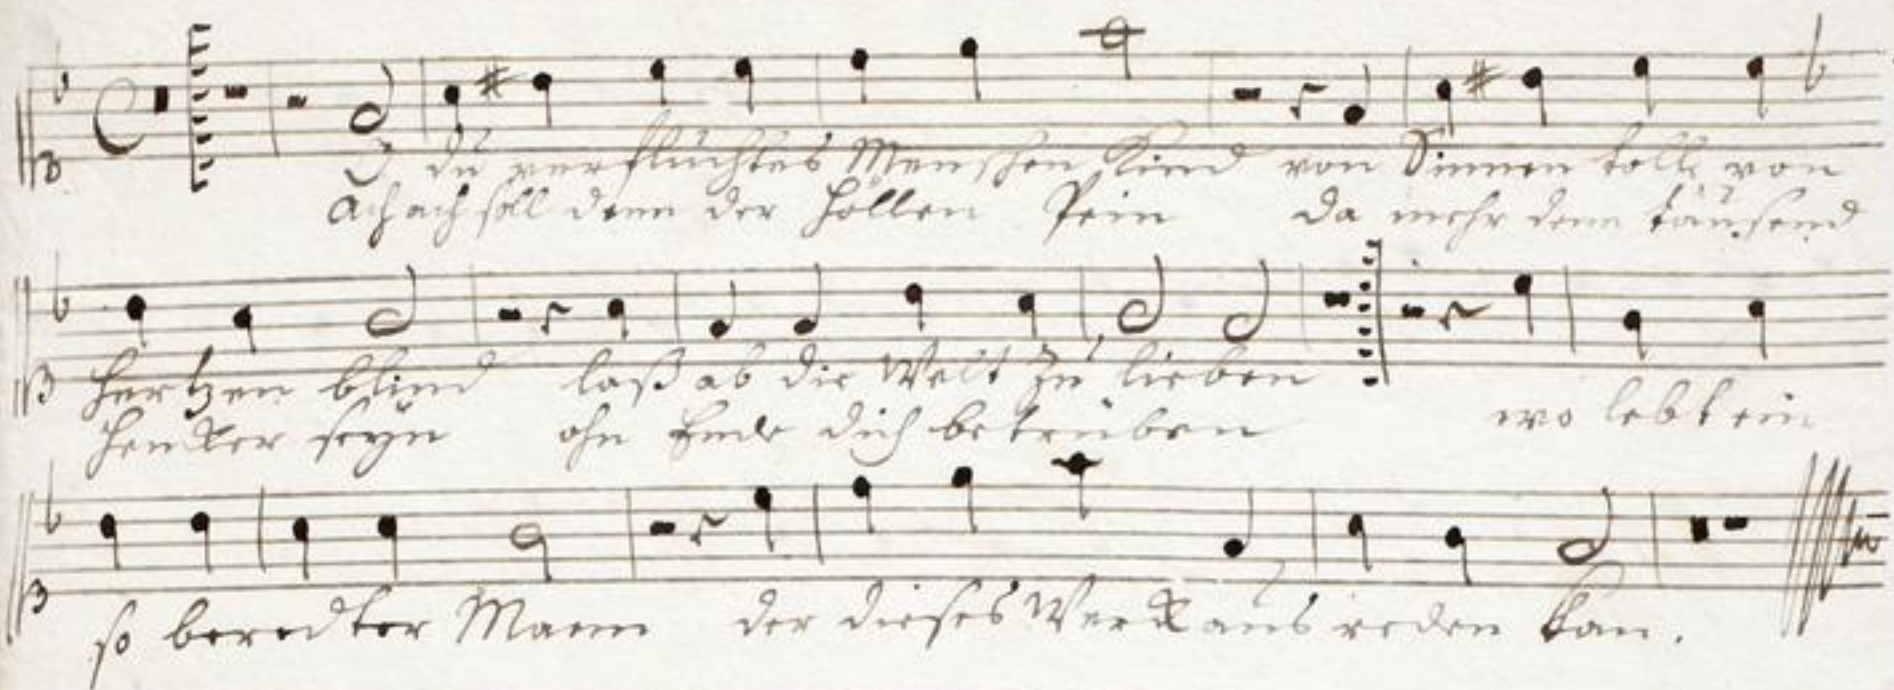 O du verfluchtes Menschen Kind von Sinnen toll, von
Ach ach soll denn der Höllen Pein da mehr denn tausend
Hertzen blind laß ab die Welt zu lieben
Hencker seyn ohn Ende dich betrüben wo lebt ein
so beredter Mann der dieses Werck aus reden kan.